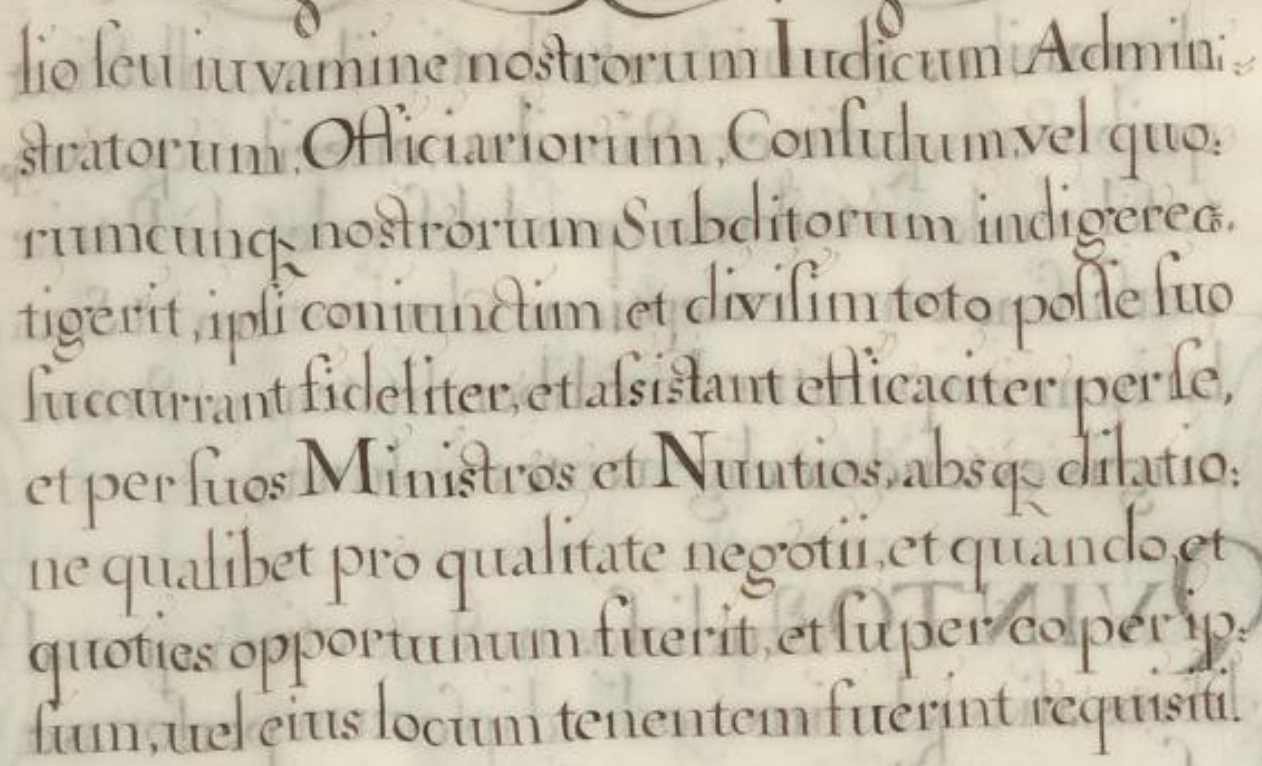 lio ſeu iuvamine nostrorum Iudicum Admini⸗
stratorum, Officiariorum, Conſulum, vel quo:
rumcunqꝫ nostrorum Subditorum indigere cō.
tigerit, ipſi coniunctim et diviſim toto poſſe ſuo
ſuccurrant fideliter, et aſsistant efficaciter per ſe,
et per ſuos Ministros et Nuntios, absqꝫ dilatio:
ne qualibet pro qualitate negotii, et quando, et
quoties opportunum fuerit, et ſuper eo per ip:
ſum, uel eius locum tenentem fuerint requisiti.